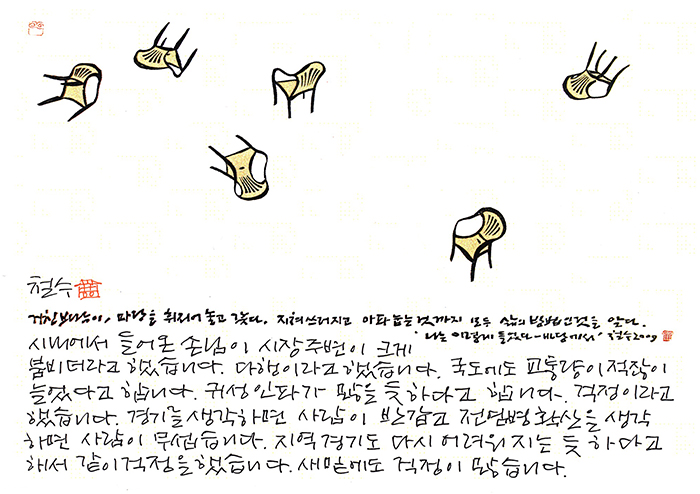 철수
마당을 놓고 갔다. 쓰러지고 아파 눕는 것까지 모두 삶의 방법인 것을 알다.
'나는 이렇게 들었다- 철수2009
시내에서 들어온 손님이 시장주변이 크게
붐비더라고 했습니다. 다행이라고 했습니다. 국도에도 교통량이 적잖이
늘었다고 합니다. 귀성인파가 많을 듯 하다고 합니다. 걱정이라고
했습니다. 경기를 생각하면 사람이 반갑고 전염병 확산을 생각
하면 사람이 무섭습니다. 지역경기도 다시 어려워지는 듯 하다고
해서 같이 걱정을 했습니다. 새밑에도 걱정이 많습니다.